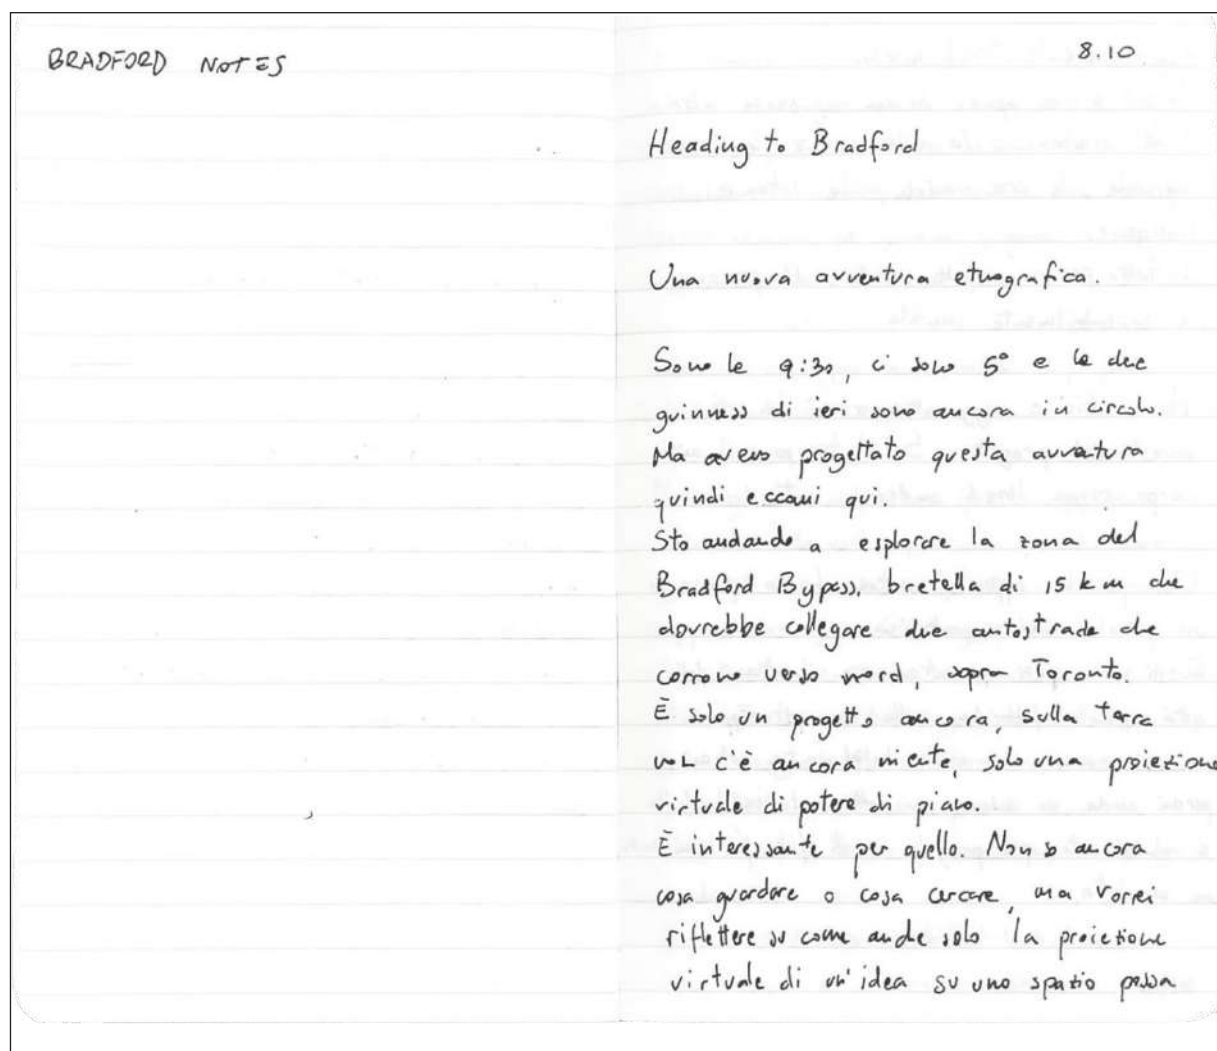 BRADFORD NOTES
8.10
Heading to Bradford
Una nuova avventura etnografica.
Sono le 9:30, ci sono 5° e le due
guinness di ieri sono ancora in circolo.
Ma avevo progettato questa avvetura
quindi eccomi qui.
Sto andando a esplorare la zona del
Bradford Bypass, bretella di 15 km che
dovrebbe collegare due autostrade che
corrono verso nord, sopra Toronto.
È solo un progetto ancora, sulla terra
non c'è ancora niente, solo una proiezione
virtuale di potere di piano.
È interessante per quello. Non so ancora
cosa guardare o cosa cercare, ma vorrei
riflettere su come anche solo la proiezione
virtuale di un'idea su uno spazio possa